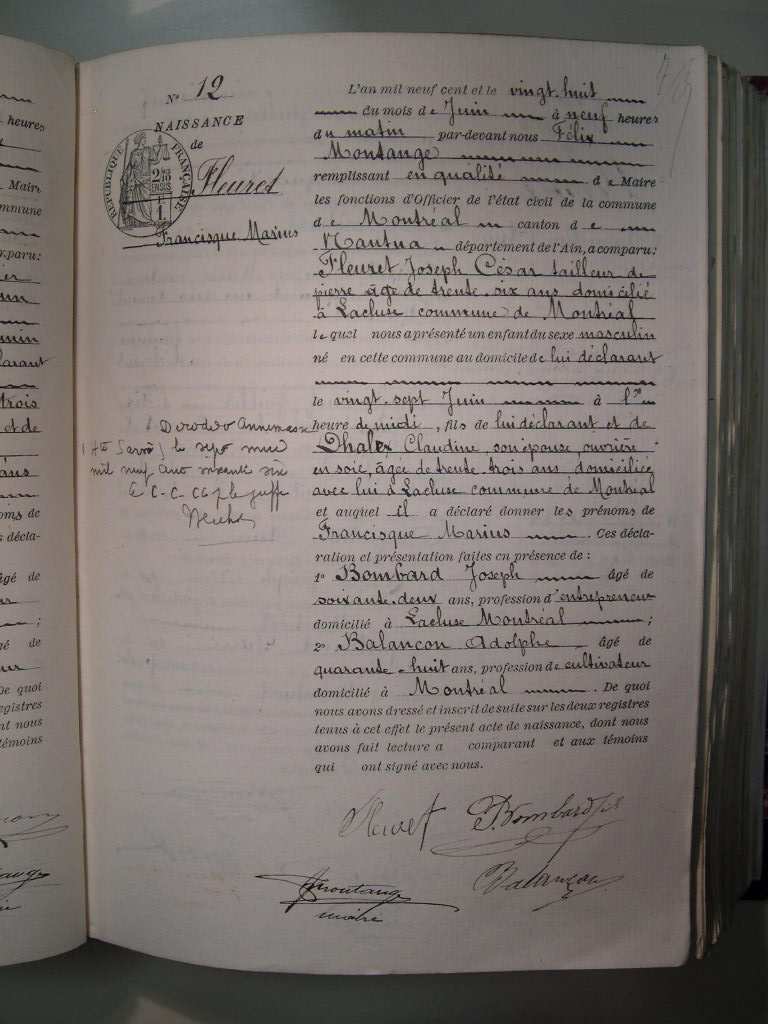 heures
Maire
commune
comparu:
déclarant
trois
et de
ans
noms de
décla-
âgé de
;
âgé de
De quoi
registres
dont nous
témoins
N° 12
NAISSANCE
de
RÉPUBLIQUE FRANÇAISE
Fleuret
Francisque Marius
L'an mil neuf cent et le vingt-huit
du mois de Juin à neuf heures
du matin par-devant nous Félix
Montange
remplissant en qualité de Maire
les fonctions d'Officier de l'état civil de la commune
de Montréal canton de
Nantua département de l'Ain, a comparu:
Fleuret Joseph César tailleur de
pierre âgé de trente-six ans domicilié
à Lacluse commune de Montréal
lequel nous a présenté un enfant du sexe masculin
né en cette commune au domicile de lui déclarant
le vingt-sept Juin à
heure de midi, fils de lui déclarant et de
Dhalex Claudine, son épouse, ouvrière
en soie, âgée de trente-trois ans domiciliée
avec lui à Lacluse commune de Montréal
et auquel il a déclaré donner les prénoms de
Francisque Marius. Ces décla-
ration et présentation faites en présence de:
1° Bombard Joseph âgé de
soixante-deux ans, profession d'entrepreneur
domicilié à Lacluse Montréal ;
2° Balançon Adolphe âgé de
quarante-huit ans, profession de cultivateur
domicilié à Montréal. De quoi
nous avons dressé et inscrit de suite sur les deux registres
tenus à cet effet le présent acte de naissance, dont nous
avons fait lecture a comparant et aux témoins
qui ont signé avec nous.
Annemasse
(Hte Savoie) le sept
mil neuf cent soixante six
le
Fleuret J. Bombard
Balançon
Montange
maire